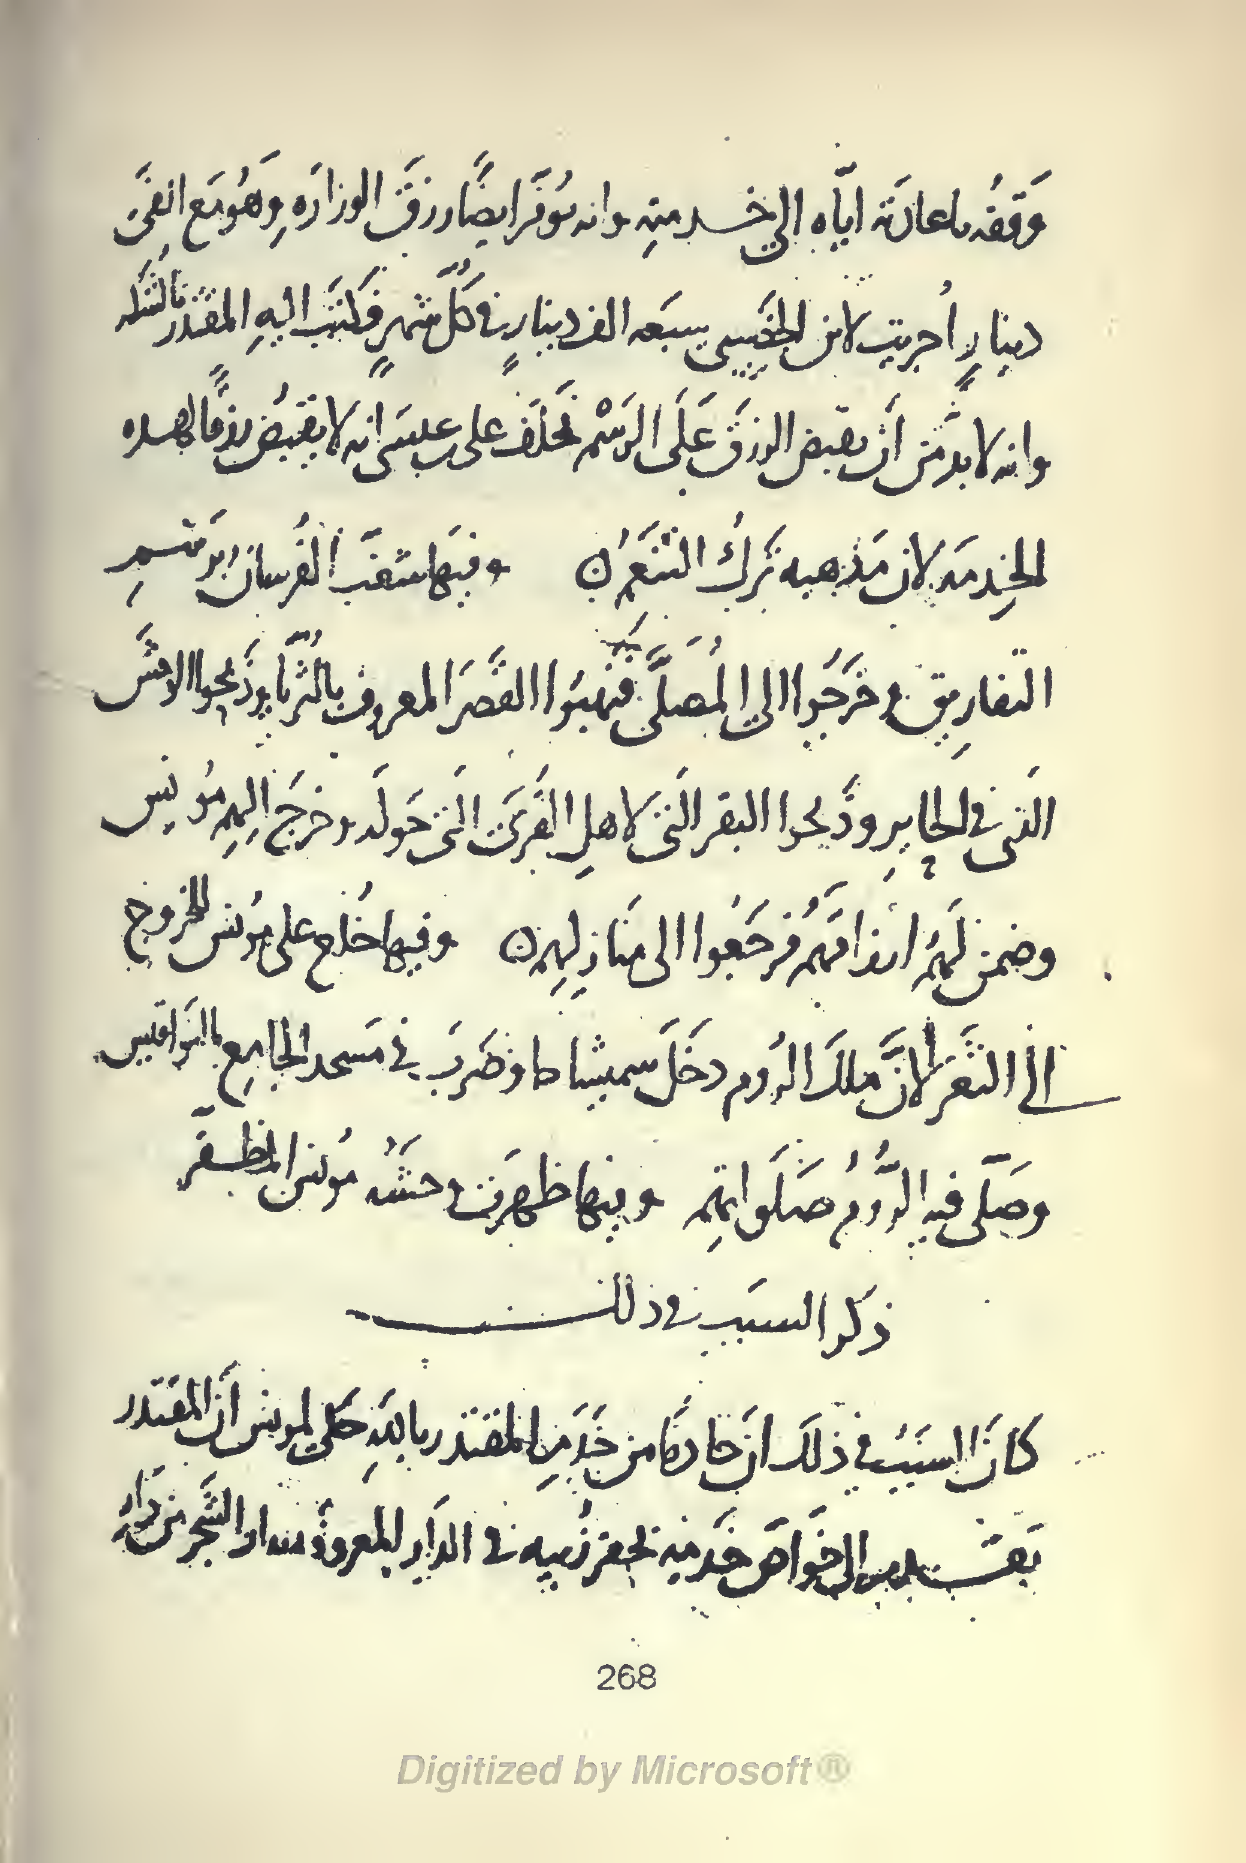 وَقفِه باعادته ايّاه الى خدمته وانه يوفر ايضًا رزق الوزاره وهو مع الفى
دينارٍ أُجريت لابن الخصيبى سبعه الف دينارٍ فى كلّ شهرٍ فكتب اليهِ المقتدر بالشكر
وانه لا بدّ من أن يقبض الرزق على الرسْم فحلف على بن عيسى انه لا يقبض رزقًا لهذه
الخِدمه لان مَذهبه ترك التنعّم ٥ وفيها شغّب الفُرسان برسم
التفاريق وخرجوا الى المُصلّى فنهبوا القصر المعروف بالثريّا وذبحوا الوحش
التى فى الحايرِ وذبحوا البقر التى لاهلِ القرى التى حوله وخرج اليهم مُونس
وضمن لَهم ارزاقهم فرجعوا الى منازلِهم ٥ وفيها خُلع على مُونس للخروج
الى الثغر لانّ ملك الرُوم دخل سميشاط وضرب فى مسجد الجامع بالنواقيس
وصلّى فيه الرُّوم صَلواتهم وفيها ظهرت وحشه مُونس المظفّر
ذكر السبب فى ذلك
كانَ السبب فى ذلك انّ خادمًا من خَدمِ المقتدر بالله حكى لمونس أن المقتدر
تقدّم الى خواصّ خدمه بحفر زُبيه فى الدارِ المعروفه بدار الشجر من دار
268
Digitized by Microsoft®